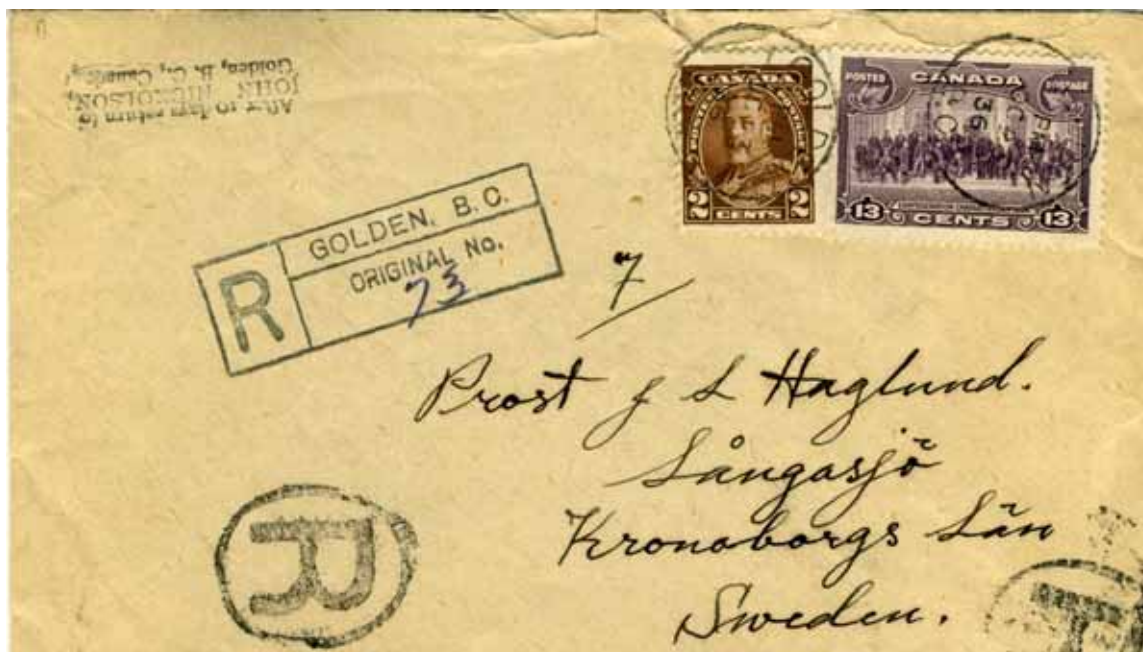 After 10 days return to
JOHN NICHOLSON,
Golden, B. C., Canada.
CANADA
2 CENTS 2
POSTES CANADA POSTAGE
13 CENTS 13
36
R
GOLDEN, B.C.
ORIGINAL No.
73
7
Prost J L Haglund.
Långasjö
Kronoborgs Län
Sweden.
R
R